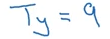 Ty = 9